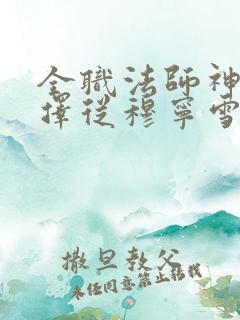 全職法師神
擇從穆寧雪
撒旦教父
未经同意禁止转载